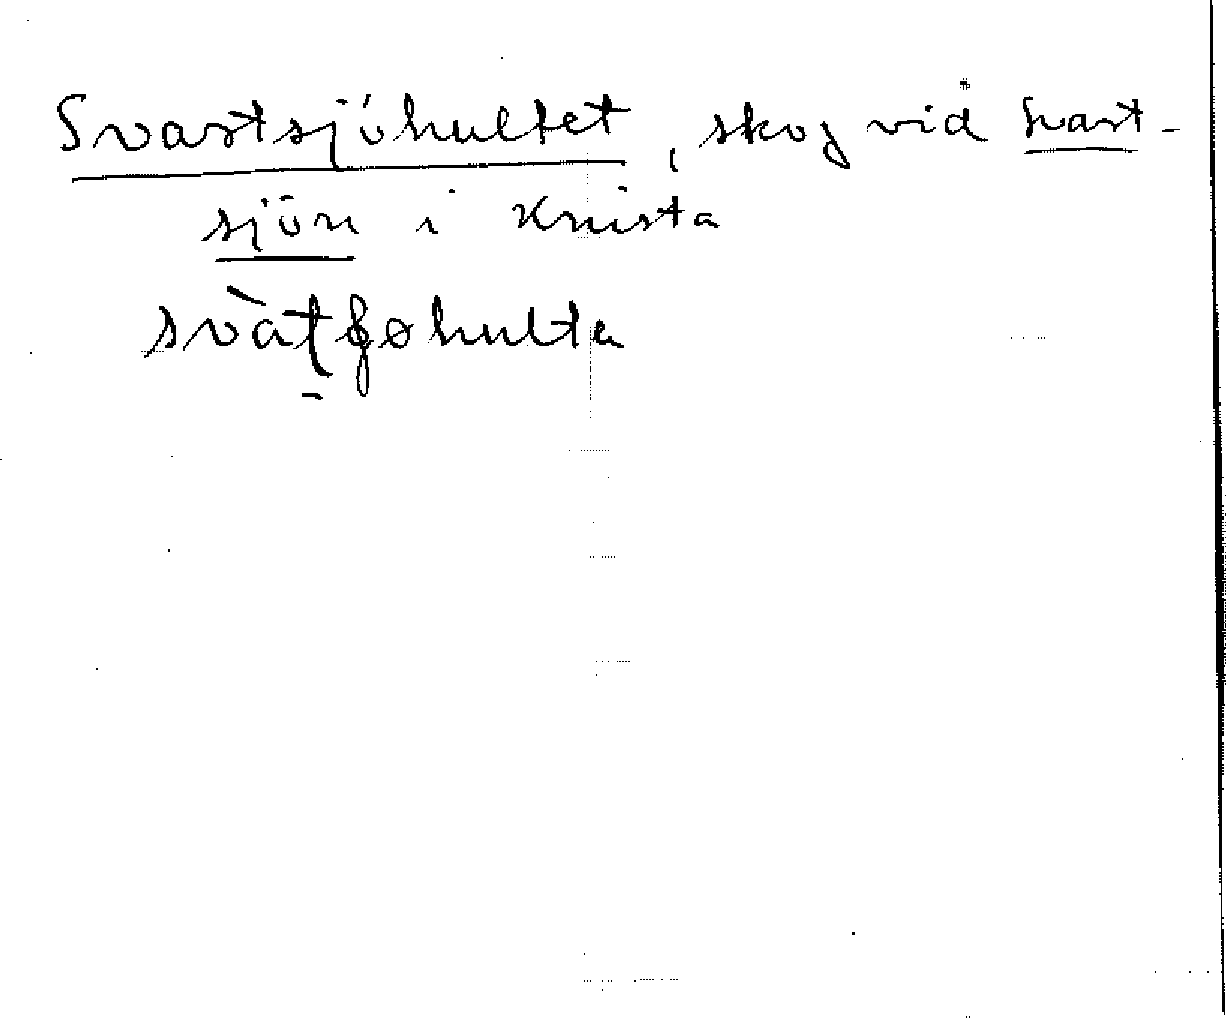 Svartsjöhultet, skog vid Svart-
sjön i Knista
svàtʂøhulta